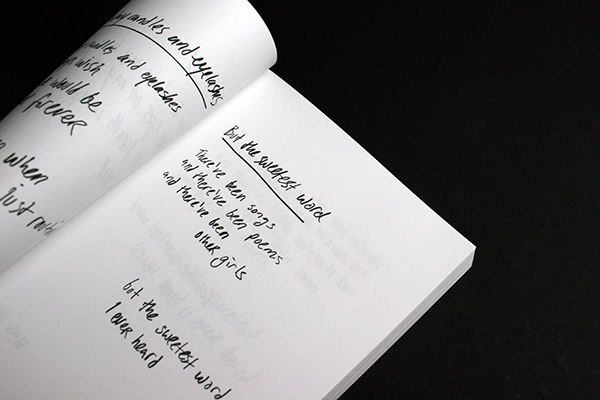 candles and eyelashes
candles and eyelashes
wish
would be
forever
when
just
But the sweetest word
There've been songs
and there've been poems
and there've been
other girls
but the sweetest word
I ever heard